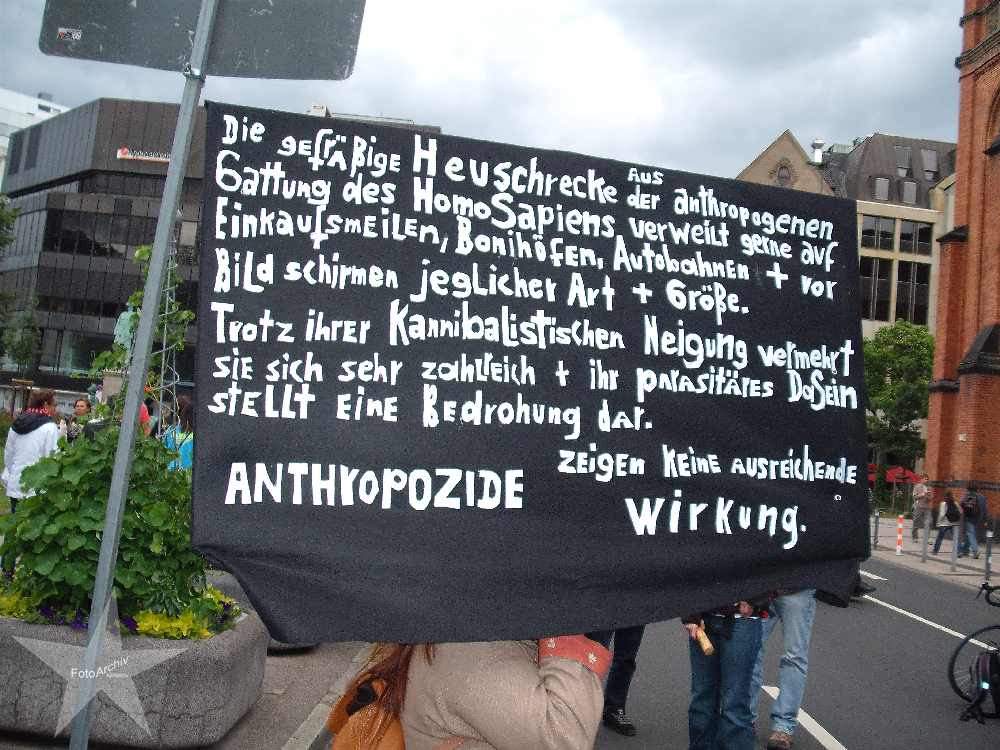 Die gefräßige Heuschrecke aus der anthropogenen
Gattung des HomoSapiens verweilt gerne auf
Einkaufsmeilen, Bonihöfen, Autobahnen + vor
Bildschirmen jeglicher Art + Größe.
Trotz ihrer Kannibalistischen Neigung vermehrt
sie sich sehr zahlreich + ihr parasitäres DaSein
stellt eine Bedrohung dar.
ANTHROPOZIDE zeigen keine ausreichende
Wirkung.
FotoArchiv